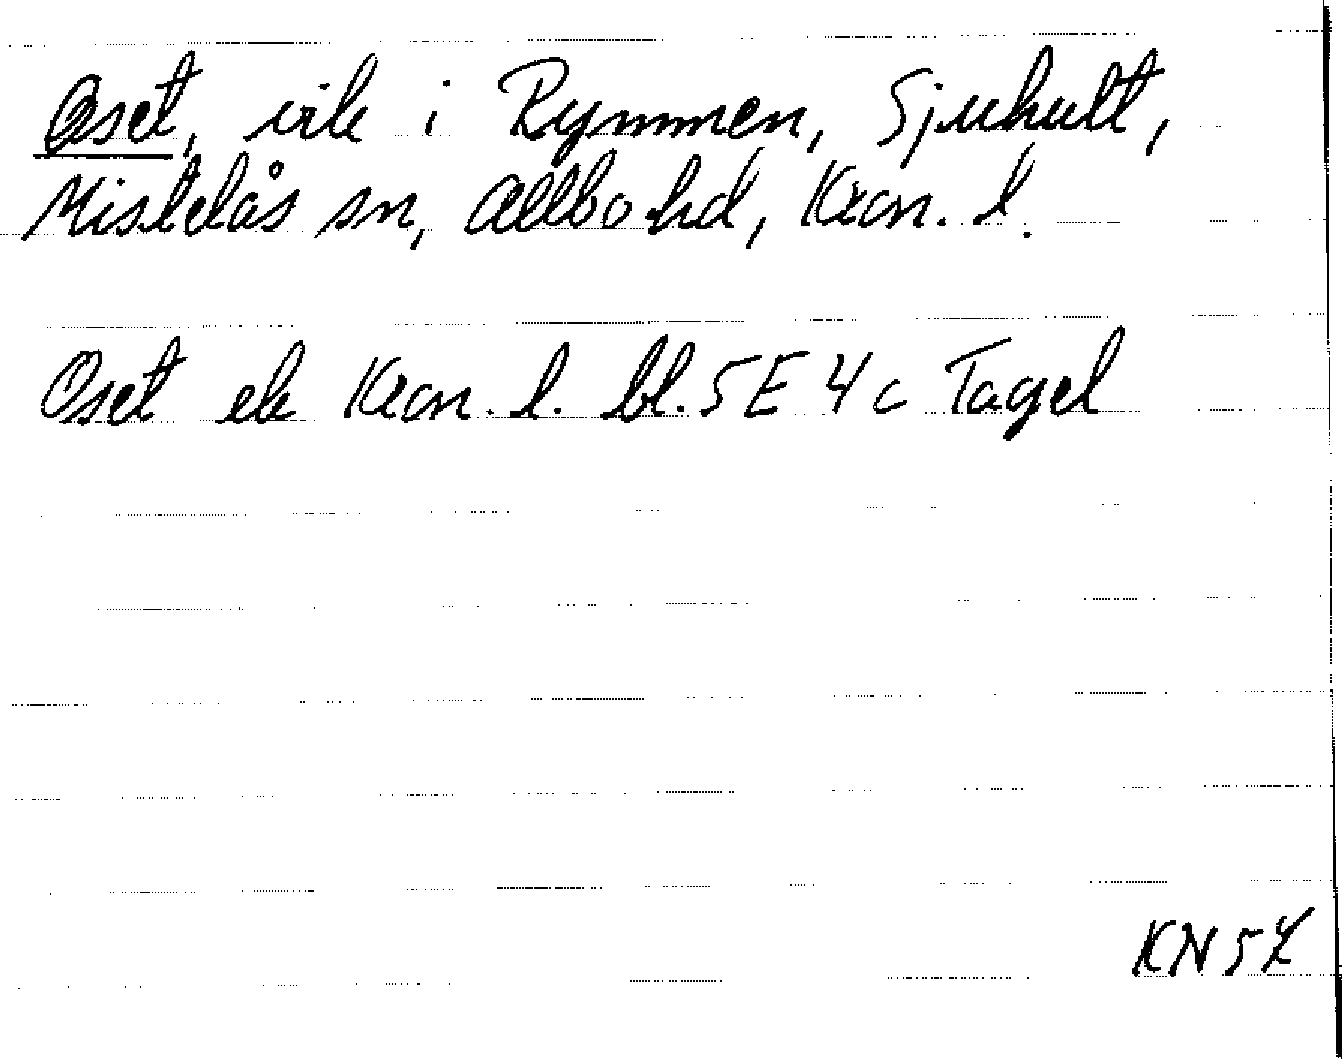 Oset, vik i Rymmen, Sjuhult,
Mistelås sn, Allbo hd, Kron. l.
Oset ek Kron. l. bl. 5E 4c Tagel
KN 57